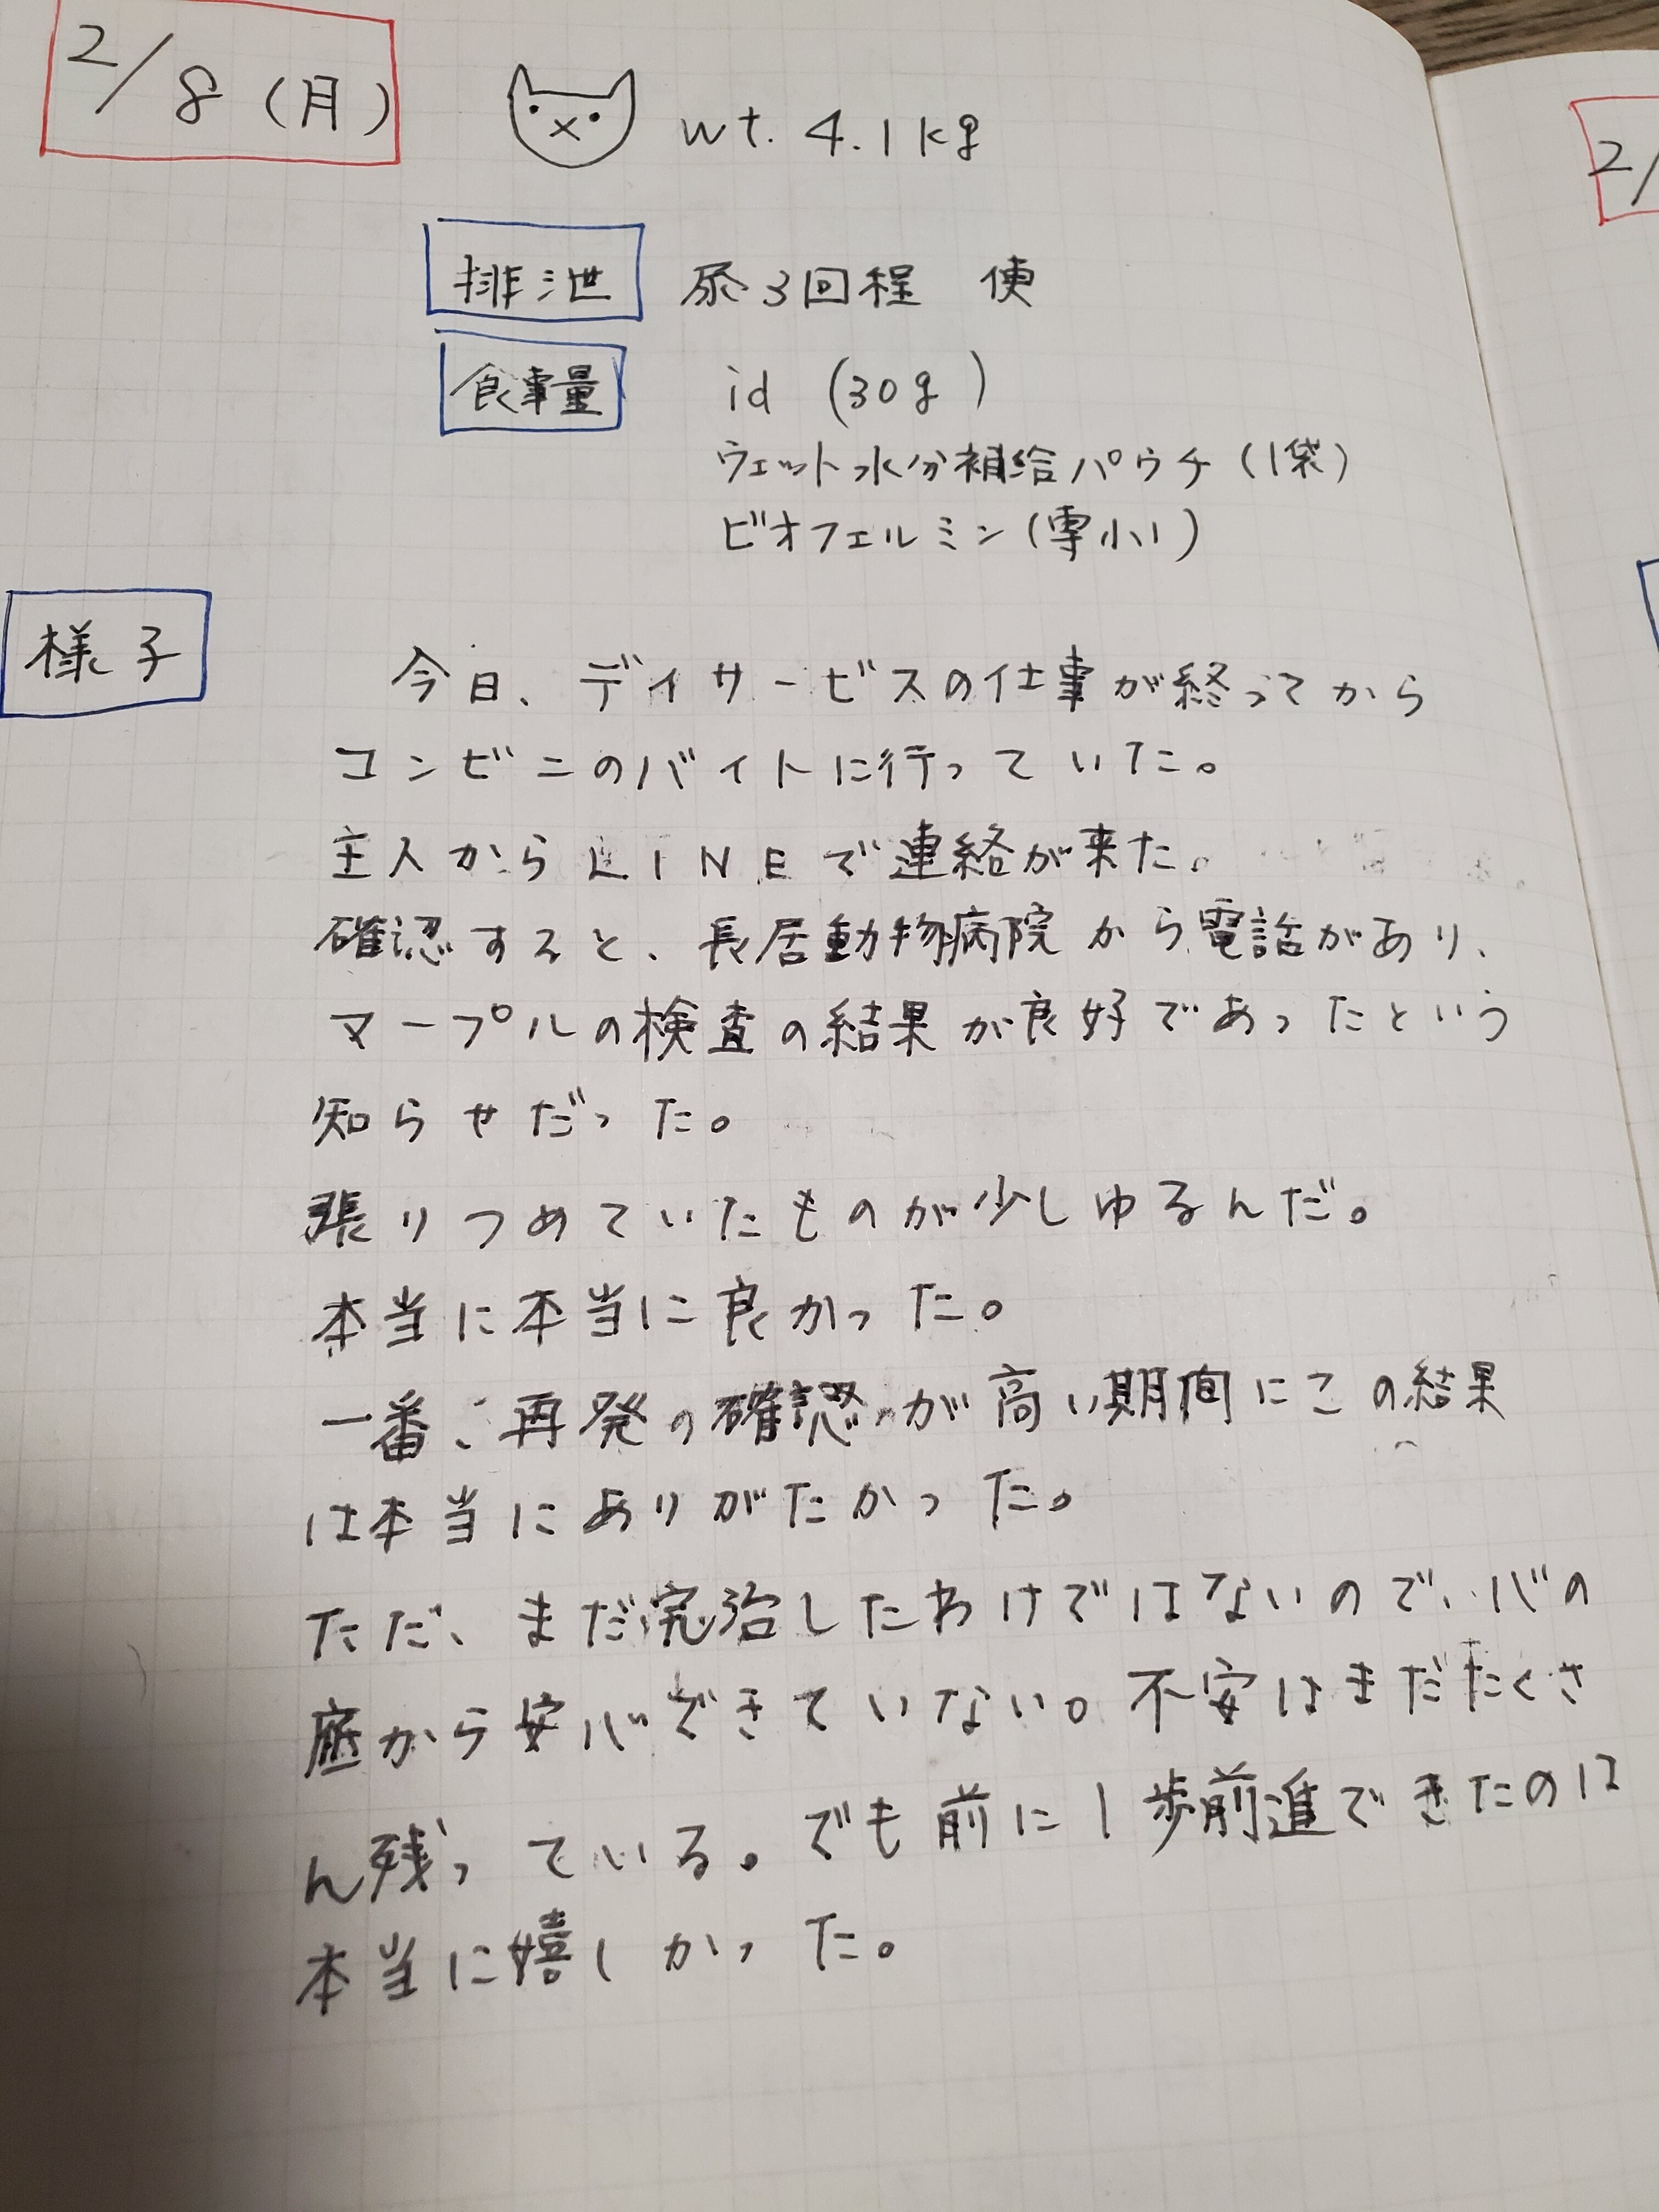 2/8(月)
wt. 4.1kg
排泄 尿3回程 便
食事量 id (30g)
ウェット水分補給パウチ(1袋)
ビオフェルミン(雫小1)
様子
今日、デイサービスの仕事が終ってから
コンビニのバイトに行っていた。
主人からLINEで連絡が来た。
確認すると、長居動物病院から電話があり、
マープルの検査の結果が良好であったという
知らせだった。
張りつめていたものが少しゆるんだ。
本当に本当に良かった。
一番、再発の確認が高い期間にこの結果
は本当にありがたかった。
ただ、まだ完治したわけではないので、心の
底から安心できていない。不安はまだたくさ
ん残っている。でも前に1歩前進できたのは
本当に嬉しかった。
2/